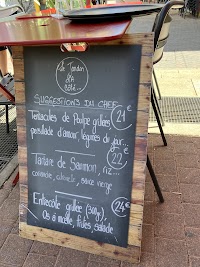 Le Jardin
SUGGESTIONS DU CHEF
Tentacules de Poulpe grillées, 21€
persillade d'amour, légumes du jour...
22
Tartare de Saumon, riz...
coriande, citronels, sauce vierge
Entrecôte grillée (300g), 24€
Os à moelle, frites, salade